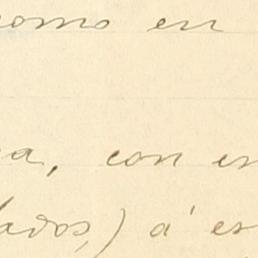 como en
a, con en
lados,) á es